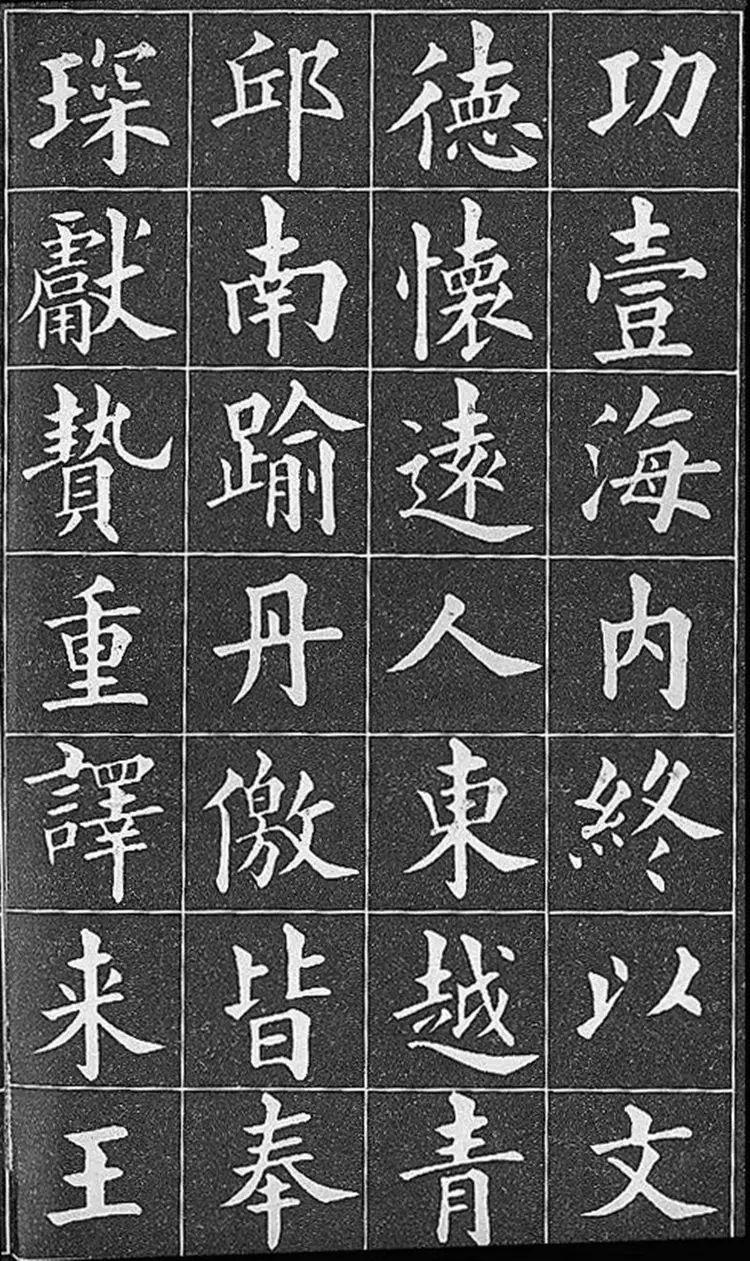 功壹海内終以文
徳懐遠人東越青
邱南踰丹儌皆奉
琛獻贄重譯来王